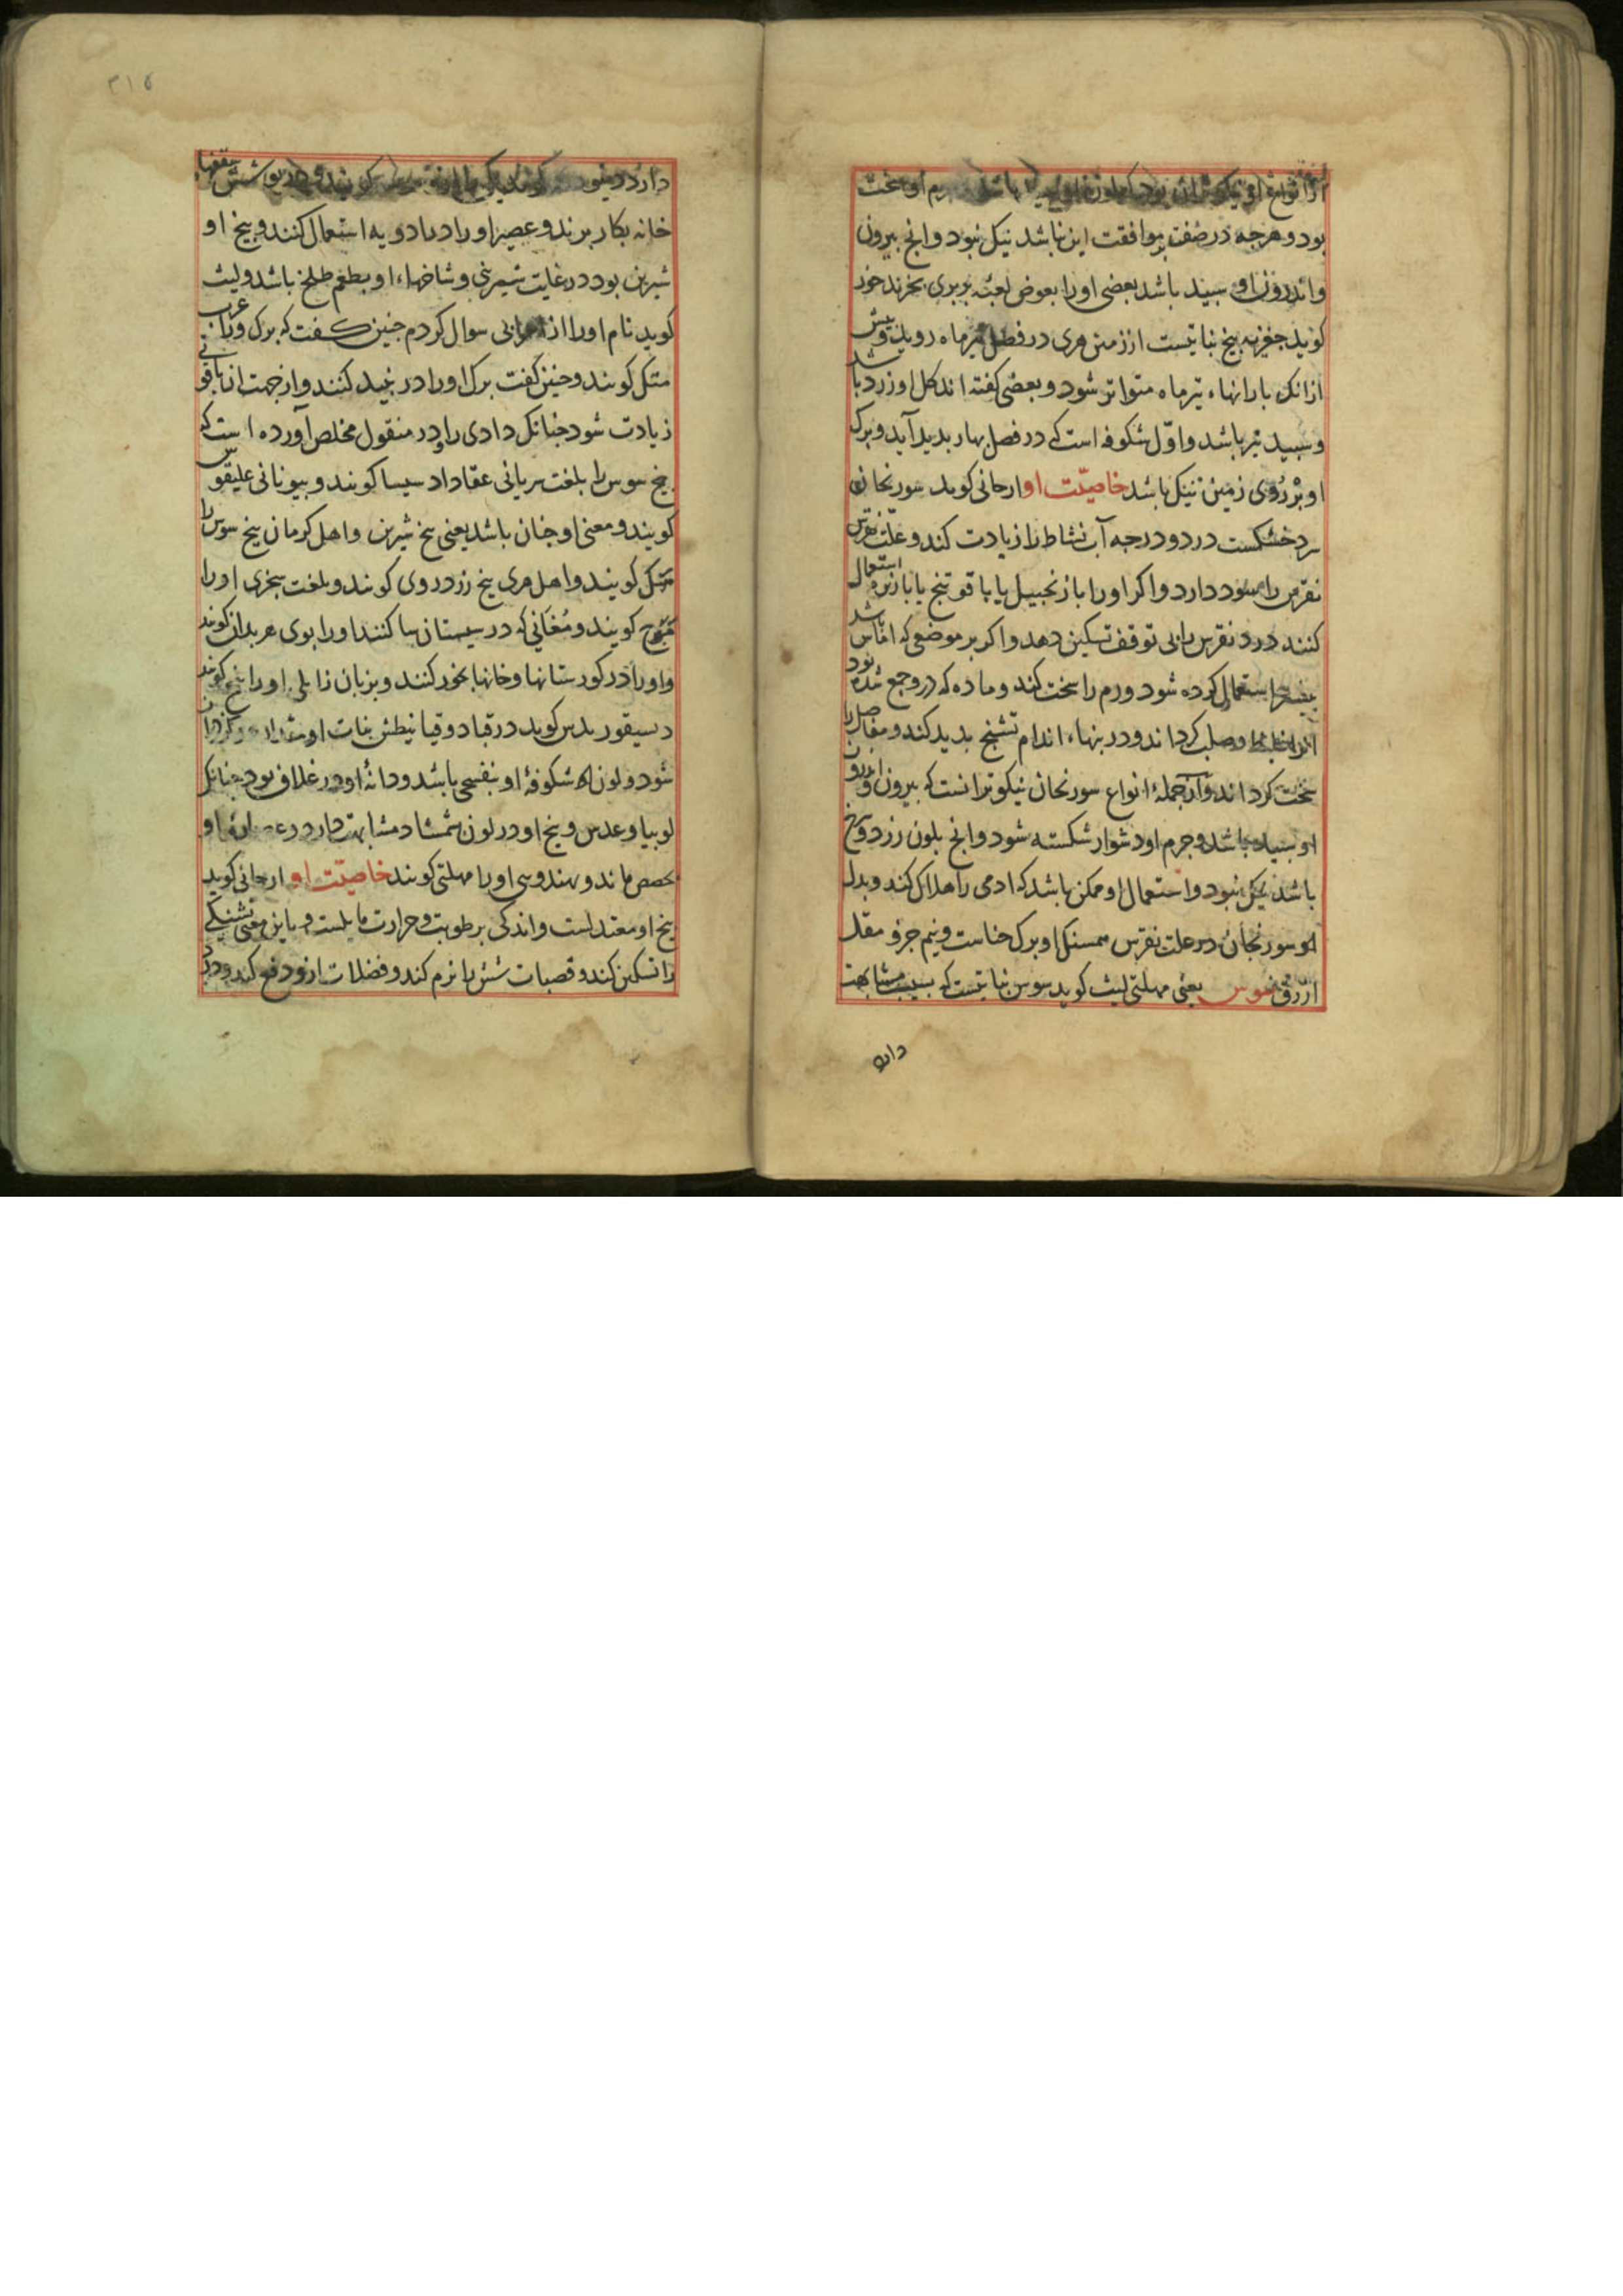 از انواع او نیکوتر آن بود که لون باشد جرم او سخت
بود و هرجه در صفت بموافقت این نباشد نیک نبود و انج بیرون
و اندرون او سبید باشد بعضی او را بعوض لعبه بربری بخرند خوز
کوید جغزبه بیخ نباتیست از زمین هری در فصل تیرماه روید و بیش
ازانک بارانهاء تیرماه متواتر شود و بعضی کفته اند کل او زرد باشد
و سبید نیز باشد و اوّل شکوفه است کی در فصل بهار بدید آید و برک
او بر روی زمین باشد خاصیّت او ارجانی کوید سورنجان
سرد خشکست در دو درجه آب نشاط را زیادت کند و علّت نقرس
نقرس را سود دارد و اکر او را با زنجبیل یا با قوتنج یا با زیره استعمال
کنند درد نقرس را بی توقف تسکین دهد و اکر بر موضعی که اماس باشد
استعمال کرده شود ورم را سخت کند و ماده که در وجع شده بود
او را وصلب کرداند و در بنهاء اندام تشنج بدید کند و مفاصل را
سخت کرداند و از جملهٔ انواع سورنجان نیکوتر انست که بیرون و اندرون
او سبید باشد و جرم او دشوار شکسته شود و انج بلون زرد و سرخ
باشد نیک نبود و استعمال او ممکن باشد که ادمی را هلاک کند و بدل
او سورنجان در علت نقرس همسنک او برک حناست و نیم جزو مقل
ازرق سوس یعنی مهلتی لیث کوید سوس نباتیست که بسبب مشابهت
دارد
۲۱۶
دارد در کویند و در بوشش سقفها
خانه بکار برند و عصیر او را در ادویه استعمال کنند و بیخ او
شیرین بود در غایت شیرینی و شاخهاء او بطعم طلخ باشد و لیث
کوید نام او را از اعرابی سوال کردم جنین کفت که برک او را عرب
متک کویند و جنین کفت برک او را در نبید کنند و از جهت ان تا قوتی
زیادت شود جنانک دادی را و در منقول مخلص آورده است که
بیخ سوس را بلغت سریانی عقاداد سیسا کویند و بیونانی علیقو
کویند و معنی او جنان باشد یعنی بیخ شیرین و اهل کرمان بیخ سوس را
متک کویند و اهل هری بیخ زردروی کویند و بلغت سجزی او را
کویند و مغانی که در سیستان با کنند او را بوی هربدان کویند
و او را در کورستانها و خانها بخور کنند و بزبان زابلی او را کویند
دسیقوریدس کوید در قبادوقیا نیطش نبات او
شود و لون شکوفهٔ او بنفسجی باشد و دانهٔ او در غلاف بود جنانک
لوبیا و عدس و بیخ او در لون بشمشاد مشابهت دارد و عصارهٔ او
بحضض ماند و بهندوی او را مهلتی کویند خاصیّت او ارجانی کوید
بیخ او معتدلست و اندکی برطوبت و حرارت مایلست و باین معنی تشنکی
را تسکین کند و قصبات شش را نرم کند و فضلات ازو دفع کند